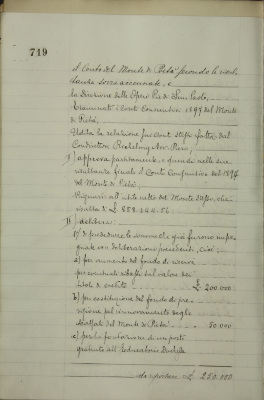 719
il Conto del Monte di Pietà secondo le risul-
tanze sovra accennate, e
La Direzione delle Opere Pie di San Paolo,
Esaminati i Conti Consuntivi 1897 del Monte
di Pietà,
Udita la relazione sui Conti stessi fatta dal
Conduttore
I) approva parzialmente, e quindi nelle sue
risultanze finali il Conto Consuntivo del 1897
del Monte di Pietà.
utile netto del Monte stesso, che
risulta di L.
II) delibera:
1) di prededurre le somme che già furono impe-
gnate con deliberazioni precedenti, cioè:
a) per aumento del fondo di riserva
per eventuali ribassi sul valore dei
titoli di credito L. 200.000
b) per costituzione del fondo di pre-
visione pel rinnovamento degli
del Monte di Pietà 50.000
c) per la fondazione di un posto
gratuito all'Educatorio Duchessa
da riportarsi L. 250.000